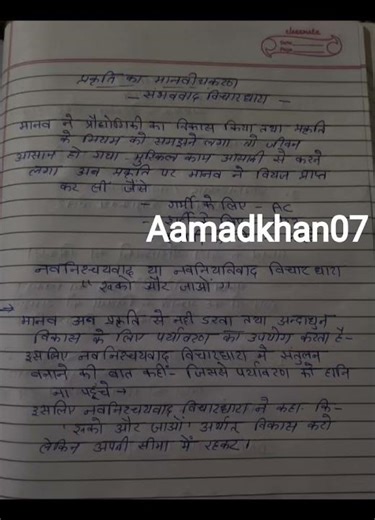 classmate
Date
Page
प्रकृति का मानवीयकरण
– संभववाद विचारधारा –
मानव ने प्रौद्योगिकी का विकास किया तथा प्रकृति
के नियम को समझने लगा तो जीवन
आसान हो गया मुश्किल काम आसानी से करने
लगा अब प्रकृति पर मानव ने विजय प्राप्त
कर ली जैसे
– गर्मी के लिए – AC
Aamadkhan07
नवनिश्चयवाद या नवनियतिवाद विचारधारा
" रुको और जाओ "
→ मानव अब प्रकृति से नही डरता तथा अन्धाधुन
विकास के लिए पर्यावरण का उपयोग करता है –
इसलिए नवनिश्चयवाद विचारधारा में संतुलन
बनाने की बात कही – जिससे पर्यावरण को हानि
ना पहुंचे →
इसलिए नवनिश्चयवाद विचारधारा ने कहा कि –
' रुको और जाओ ' अर्थात विकास करो
लेकिन अपनी सीमा में रहकर ।